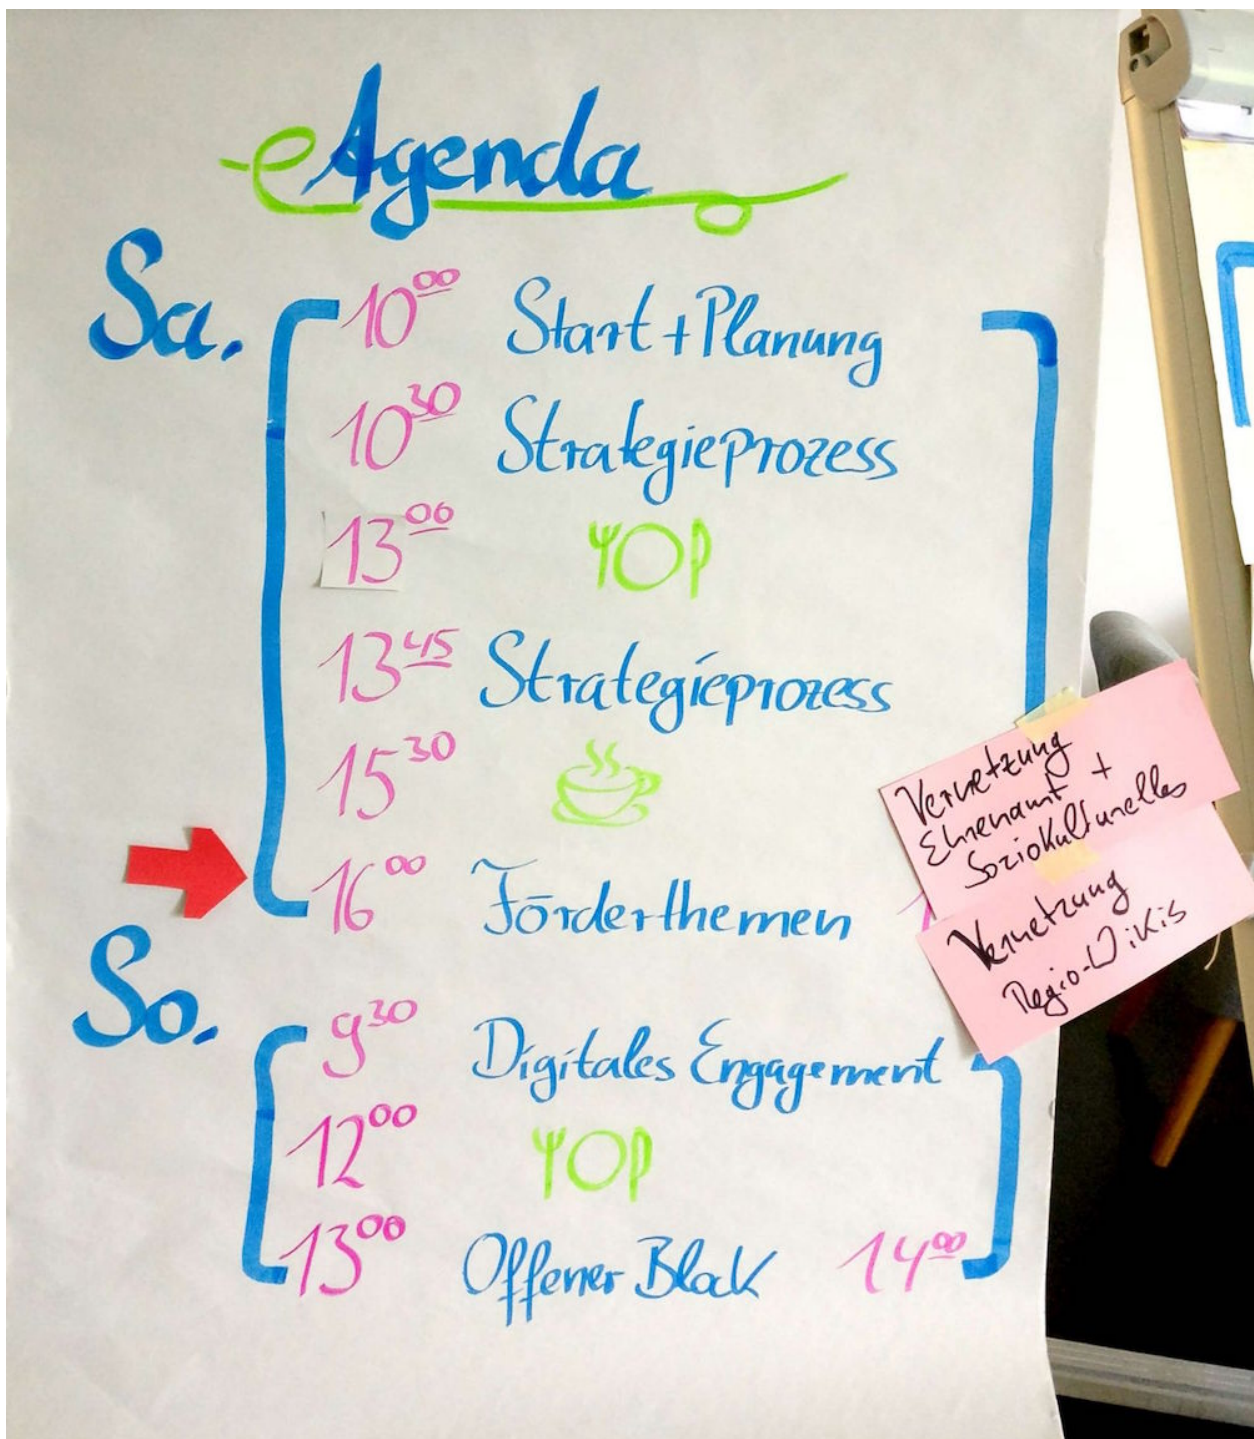 Agenda
Sa.
10⁰⁰ Start + Planung
10³⁰ Strategieprozess
13⁰⁰
13⁴⁵ Strategieprozess
15³⁰
16⁰⁰ Förderthemen
Vernetzung
Ehrenamt +
Soziokulturelles
Vernetzung
Regio-Wikis
So.
9³⁰ Digitales Engagement
12⁰⁰
13⁰⁰ Offener Block 14⁰⁰